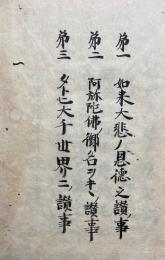 第一 如来大悲ノ恩徳之讃事
第二 阿弥陀佛御名ヲキヽ讃事
第三 タトヒ大千世界ニ讃事